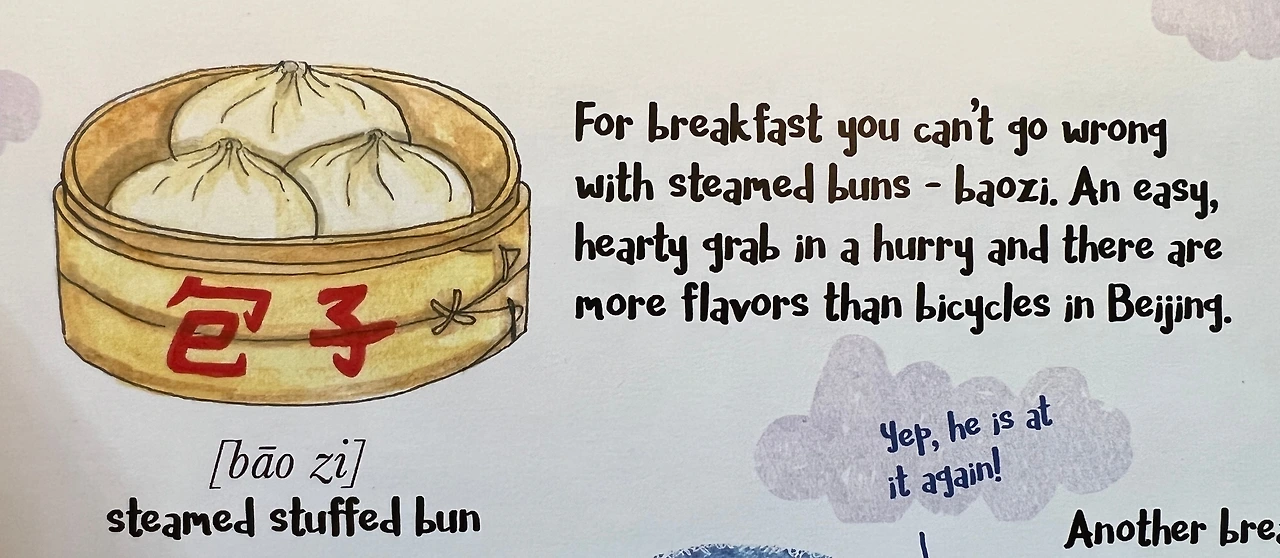 For breakfast you can't go wrong
with steamed buns - baozi. An easy,
hearty grab in a hurry and there are
more flavors than bicycles in Beijing.
包子
[bāo zi]
steamed stuffed bun
Yep, he is at
it again!
Another